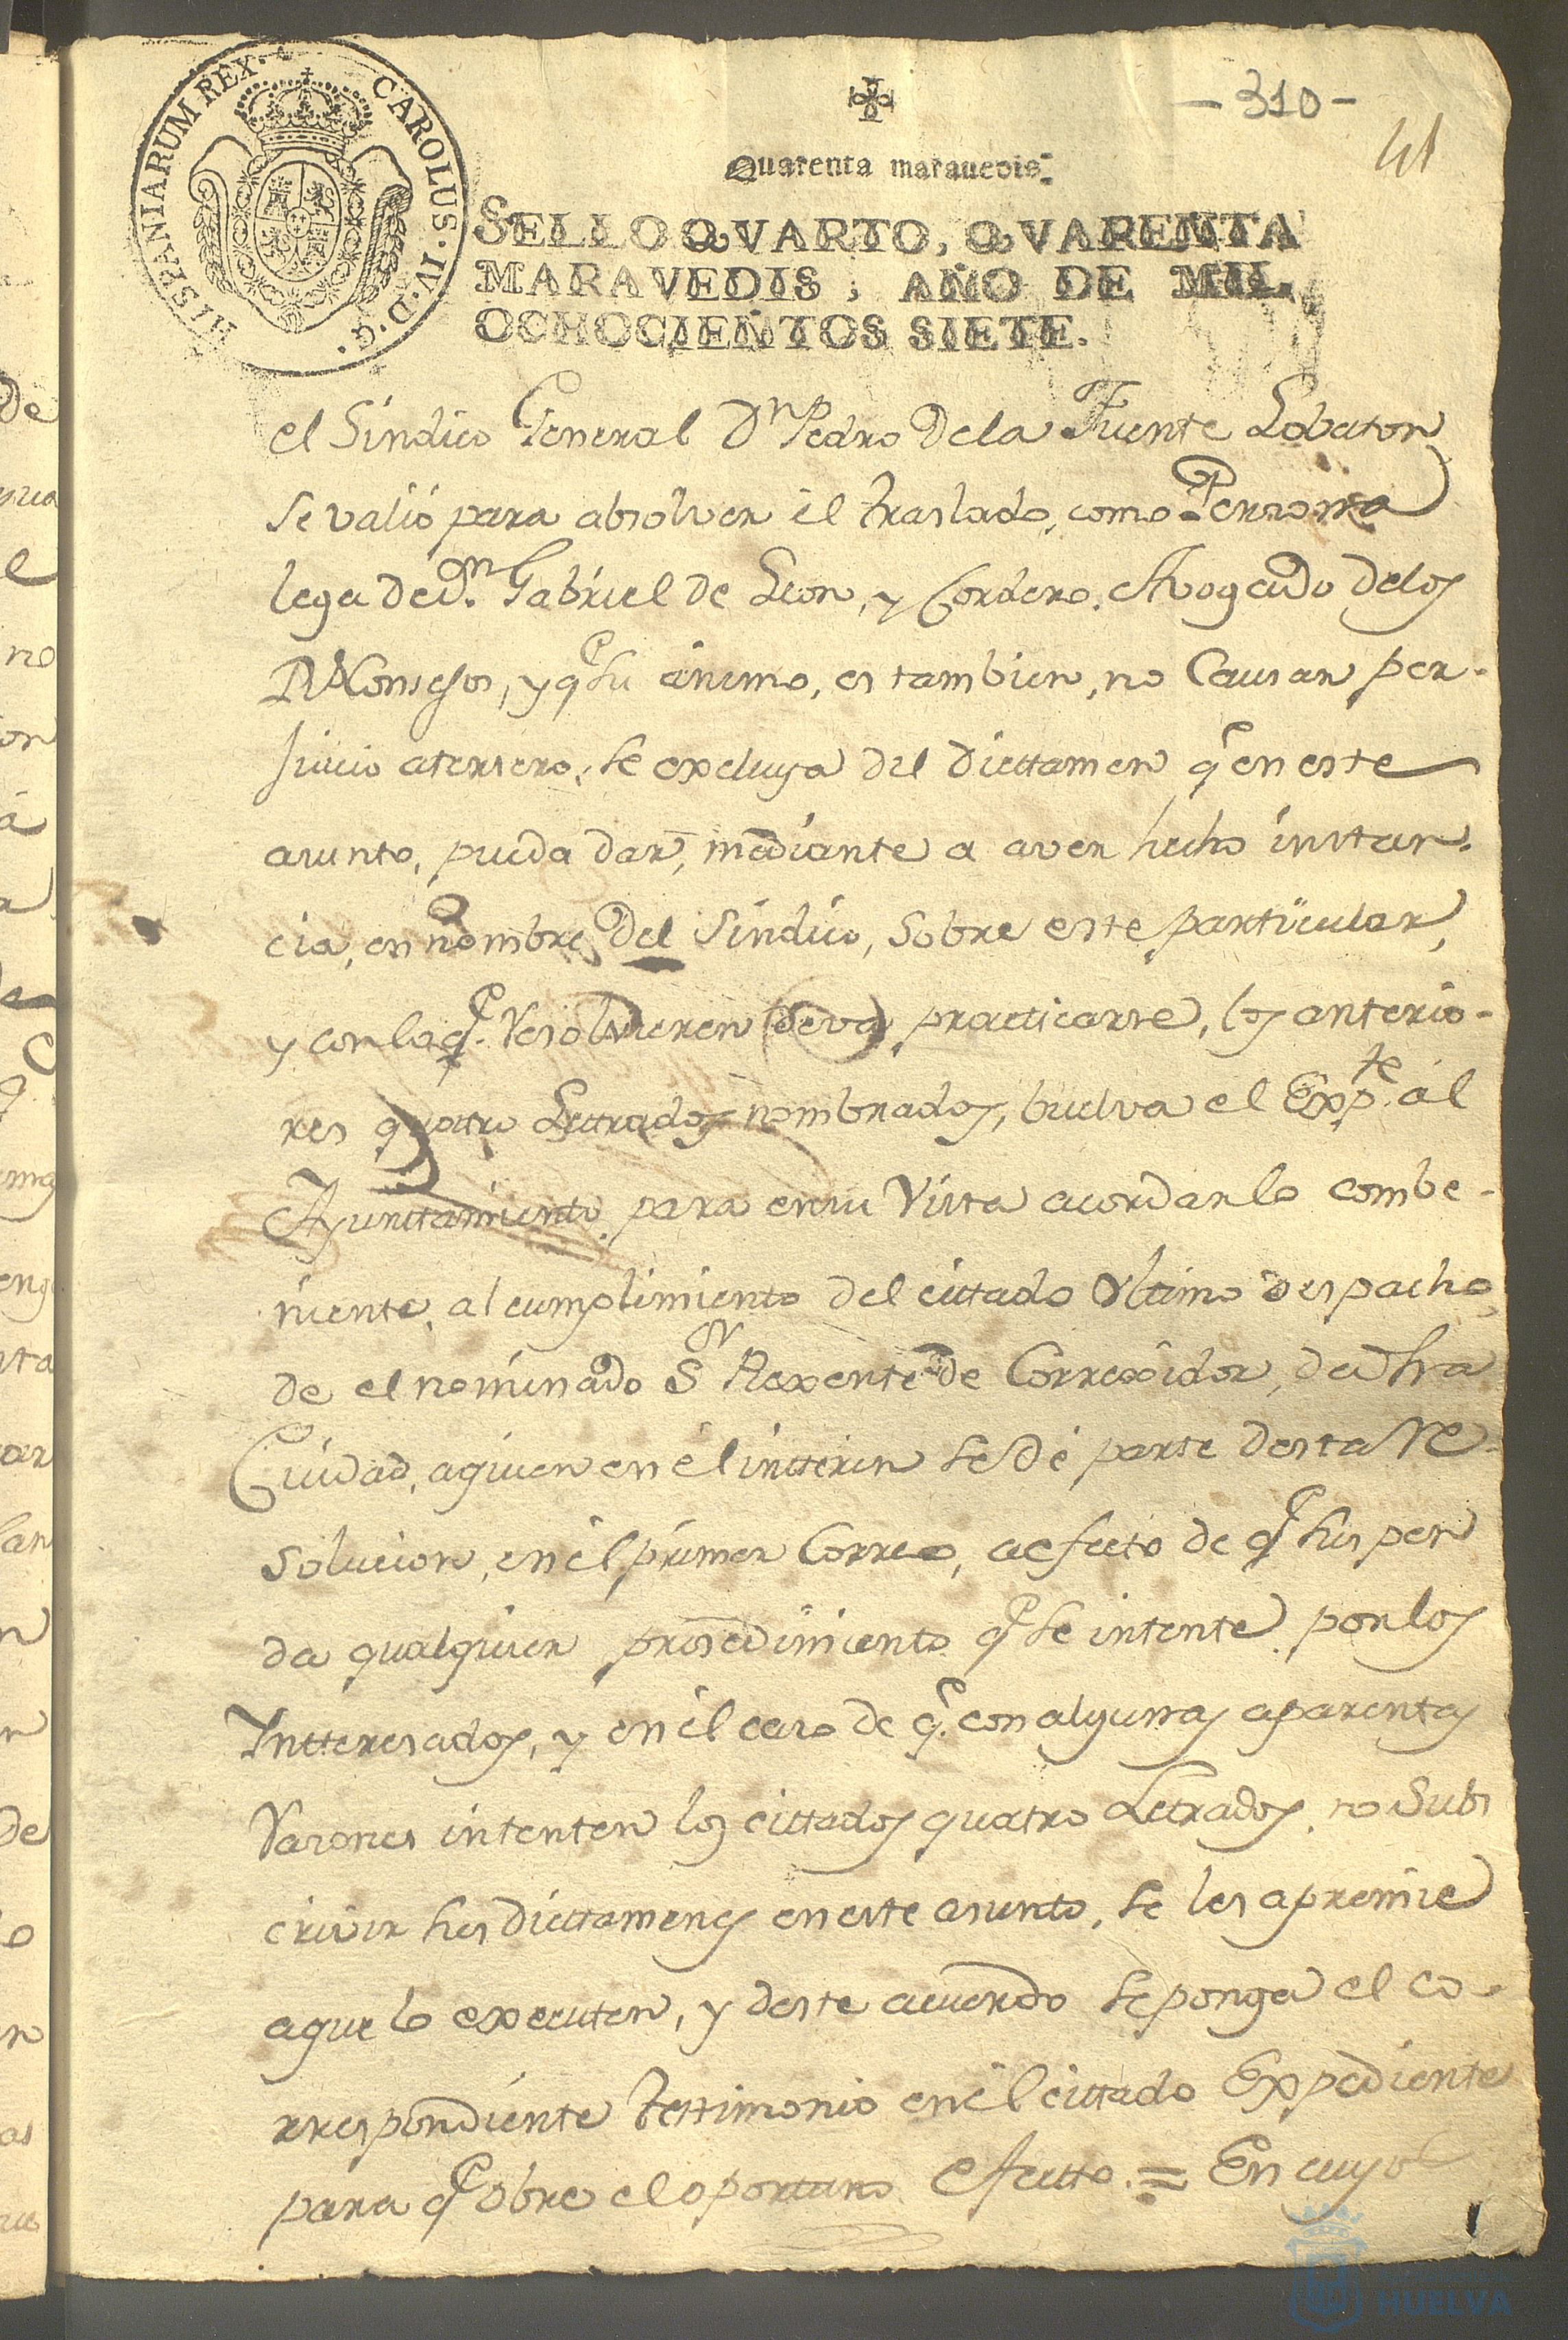 HISPANIARUM REX · CAROLUS · IV · D · G ·
- 310 -
41
Quarenta maravedis.
SELLO QVARTO, QVARENTA
MARAVEDIS, AÑO DE MIL
OCHOCIENTOS SIETE.
el Síndico General Dn Pedro Dela Fuente Lobaton
se valió para absolver él traslado, como Persona
lega de Dn. Gabriel de Leon, y Cordero, Avogado delos
Rs Consejos, y qe su ánimo, es tambien, no Causar per-
juicio atersero, se excluya del Dicttamen qe en este
asunto, pueda dar, mediante a aver hecho instan-
cia, en nombre Del Síndico, sobre este partícular,
y con lo qe. resolvieren deva practicarse, los anterio-
res quatro Letrados nombrados, buelva el Expte. ál
Ayuntamiento para en su vista acordar lo combe-
niente, al cumplimiento del cittado último despacho,
de el nominado Sor Rexente de Correxidor, de dha
Ciudad, aquien en él intterin se dé parte desta re-
solucion, en él primer Correo, aefecto de qe suspen
da qualquier prosedimiento qe se intente por los
Ynteresados, y en él caso de qe. con algunas aparentes
rasones intenten los cittados quatro Letrados, no Subs
crivir sus Dicttamenes en este asunto, se les apremie
aque lo executen, y deste acuerdo se ponga el co-
rrespondiente testimonio en él cittado Expediente
para qe obre el oportuno efectto. = En cuyo
HUELVA